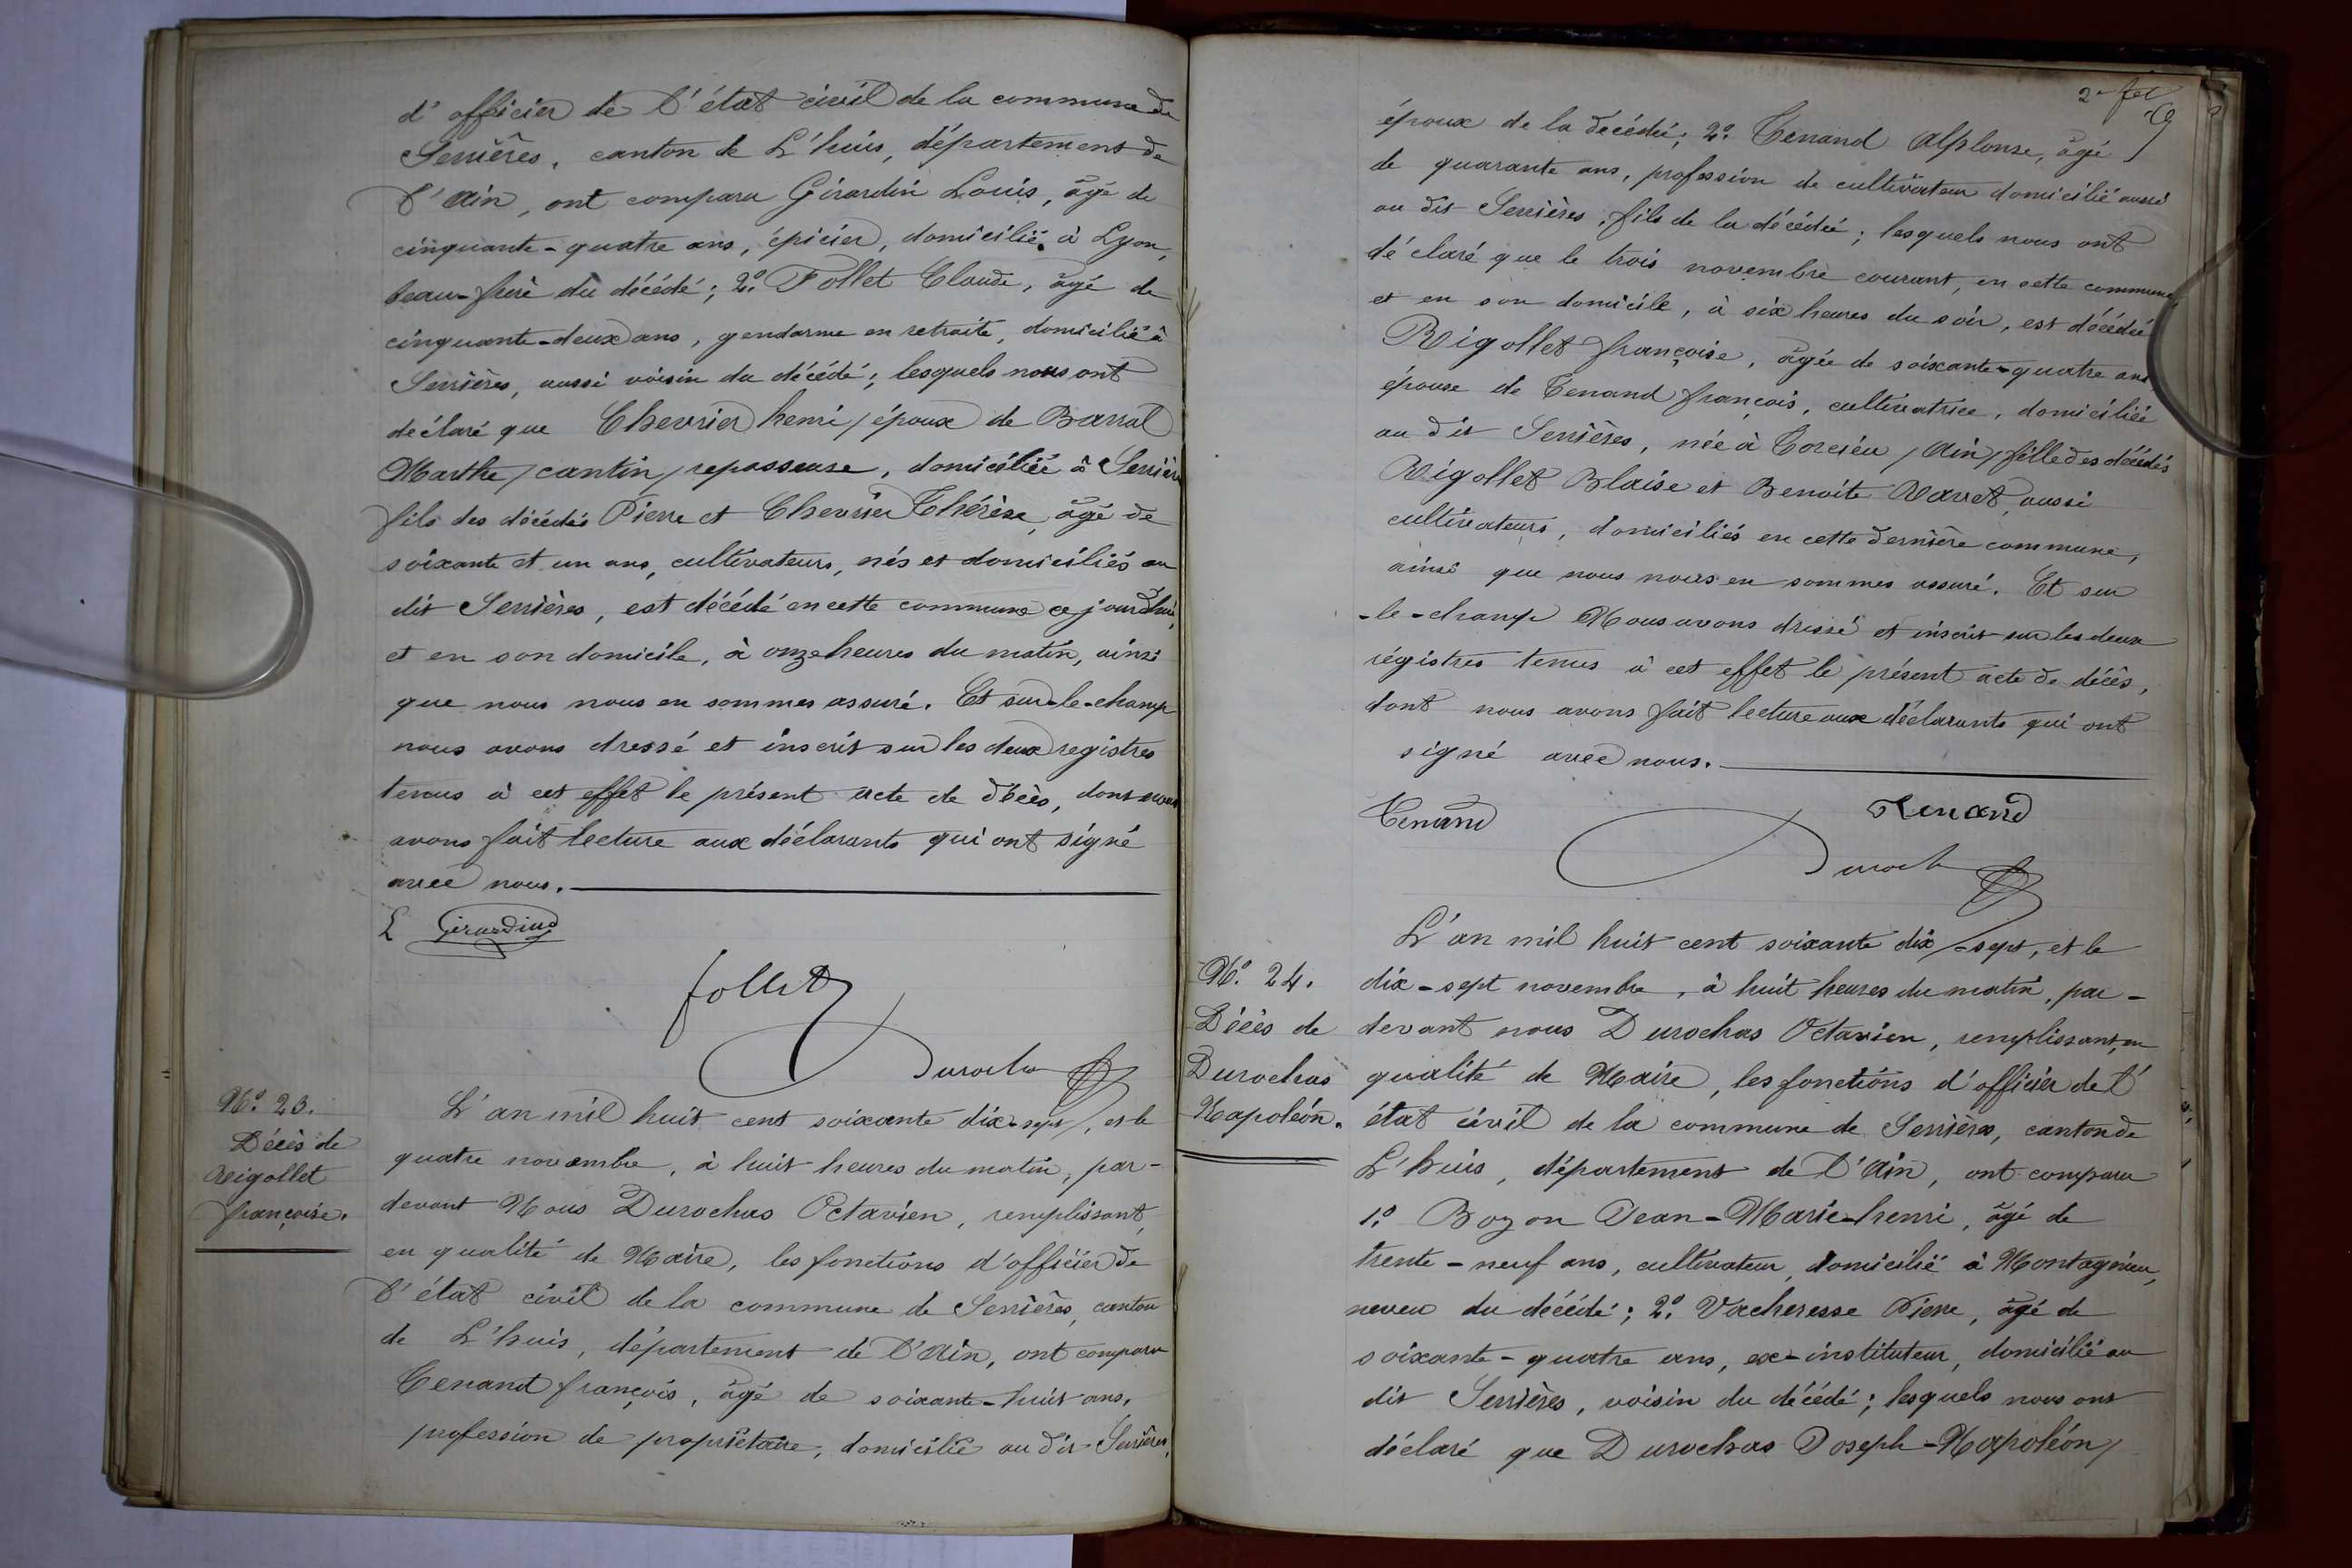 d'officier de l'état civil de la commune de
Serrières, canton de L'huis, département de
l'Ain, ont comparu Girardin Louis, âgé de
cinquante-quatre ans, épicier, domicilié à Lyon,
beau-frère du décédé; 2º. Follet Claude, âgé de
cinquante-deux ans, gendarme en retraite, domicilié à
Serrières, aussi voisin du décédé; lesquels nous ont
déclaré que Chevrier henri / époux de Barral
Marthe / cantin / repasseuse, domiciliée à Serrières
fils des décédés Pierre et Chevrier Thérèse, âgé de
soixante et un ans, cultivateurs, nés et domiciliés au
dit Serrières, est décédé en cette commune ce jourd'hui,
et en son domicile, à onze heures du matin, ainsi
que nous nous en sommes assuré. Et sur-le-champ
nous avons dressé et inscrit sur les deux registres
tenus à cet effet le présent acte de décès, dont nous
avons fait lecture aux déclarants qui ont signé
avec nous.
L Girardin
follet
Duroch
Nº. 23.
Décès de
Rigollet
françoise.
L'an mil huit cent soixante dix-sept, et le
quatre novembre, à huit heures du matin, par-
devant Nous Durochas Octavien, remplissant,
en qualité de Maire, les fonctions d'officier de
l'état civil de la commune de Serrières, canton
de L'huis, département de l'Ain, ont comparu
Tenand françois, âgé de soixante-huit ans,
profession de propriétaire, domicilié au dit Serrières,
2e fet
époux de la décédée; 2º. Tenand Alphonse, âgé
de quarante ans, profession de cultivateur domicilié aussi
au dit Serrières, fils de la décédée; lesquels nous ont
déclaré que le trois novembre courant, en cette commune
et en son domicile, à six heures du soir, est décédée
Rigollet françoise, âgée de soixante-quatre ans
épouse de Tenand françois, cultivatrice, domiciliée
au dit Serrières, née à Torcieu / Ain / fille des décédés
Rigollet Blaise et Benoite Ravet, aussi
cultivateurs, domiciliés en cette dernière commune,
ainsi que nous nous en sommes assuré. Et sur
-le-champ Nous avons dressé et inscrit sur les deux
régistres tenus à cet effet le présent acte de décès,
dont nous avons fait lecture aux déclarants qui ont
signé avec nous.
Tenand Tenand
Duroch
Nº. 24.
Décès de
Durochas
Napoléon.
L'an mil huit cent soixante dix-sept, et le
dix-sept novembre, à huit heures du matin, par-
devant nous Durochas Octavien, remplissant, en
qualité de Maire, les fonctions d'officier de l'
état civil de la commune de Serrières, canton de
L'huis, département de l'Ain, ont comparu
1º. Bozon Jean-Marie-henri, âgé de
trente-neuf ans, cultivateur, domicilié à Montagnieu,
neveu du décédé; 2º. Vacheresse Pierre, âgé de
soixante-quatre ans, ex-instituteur, domicilié au
dit Serrières, voisin du décédé; lesquels nous ont
déclaré que Durochas Joseph-Napoléon /